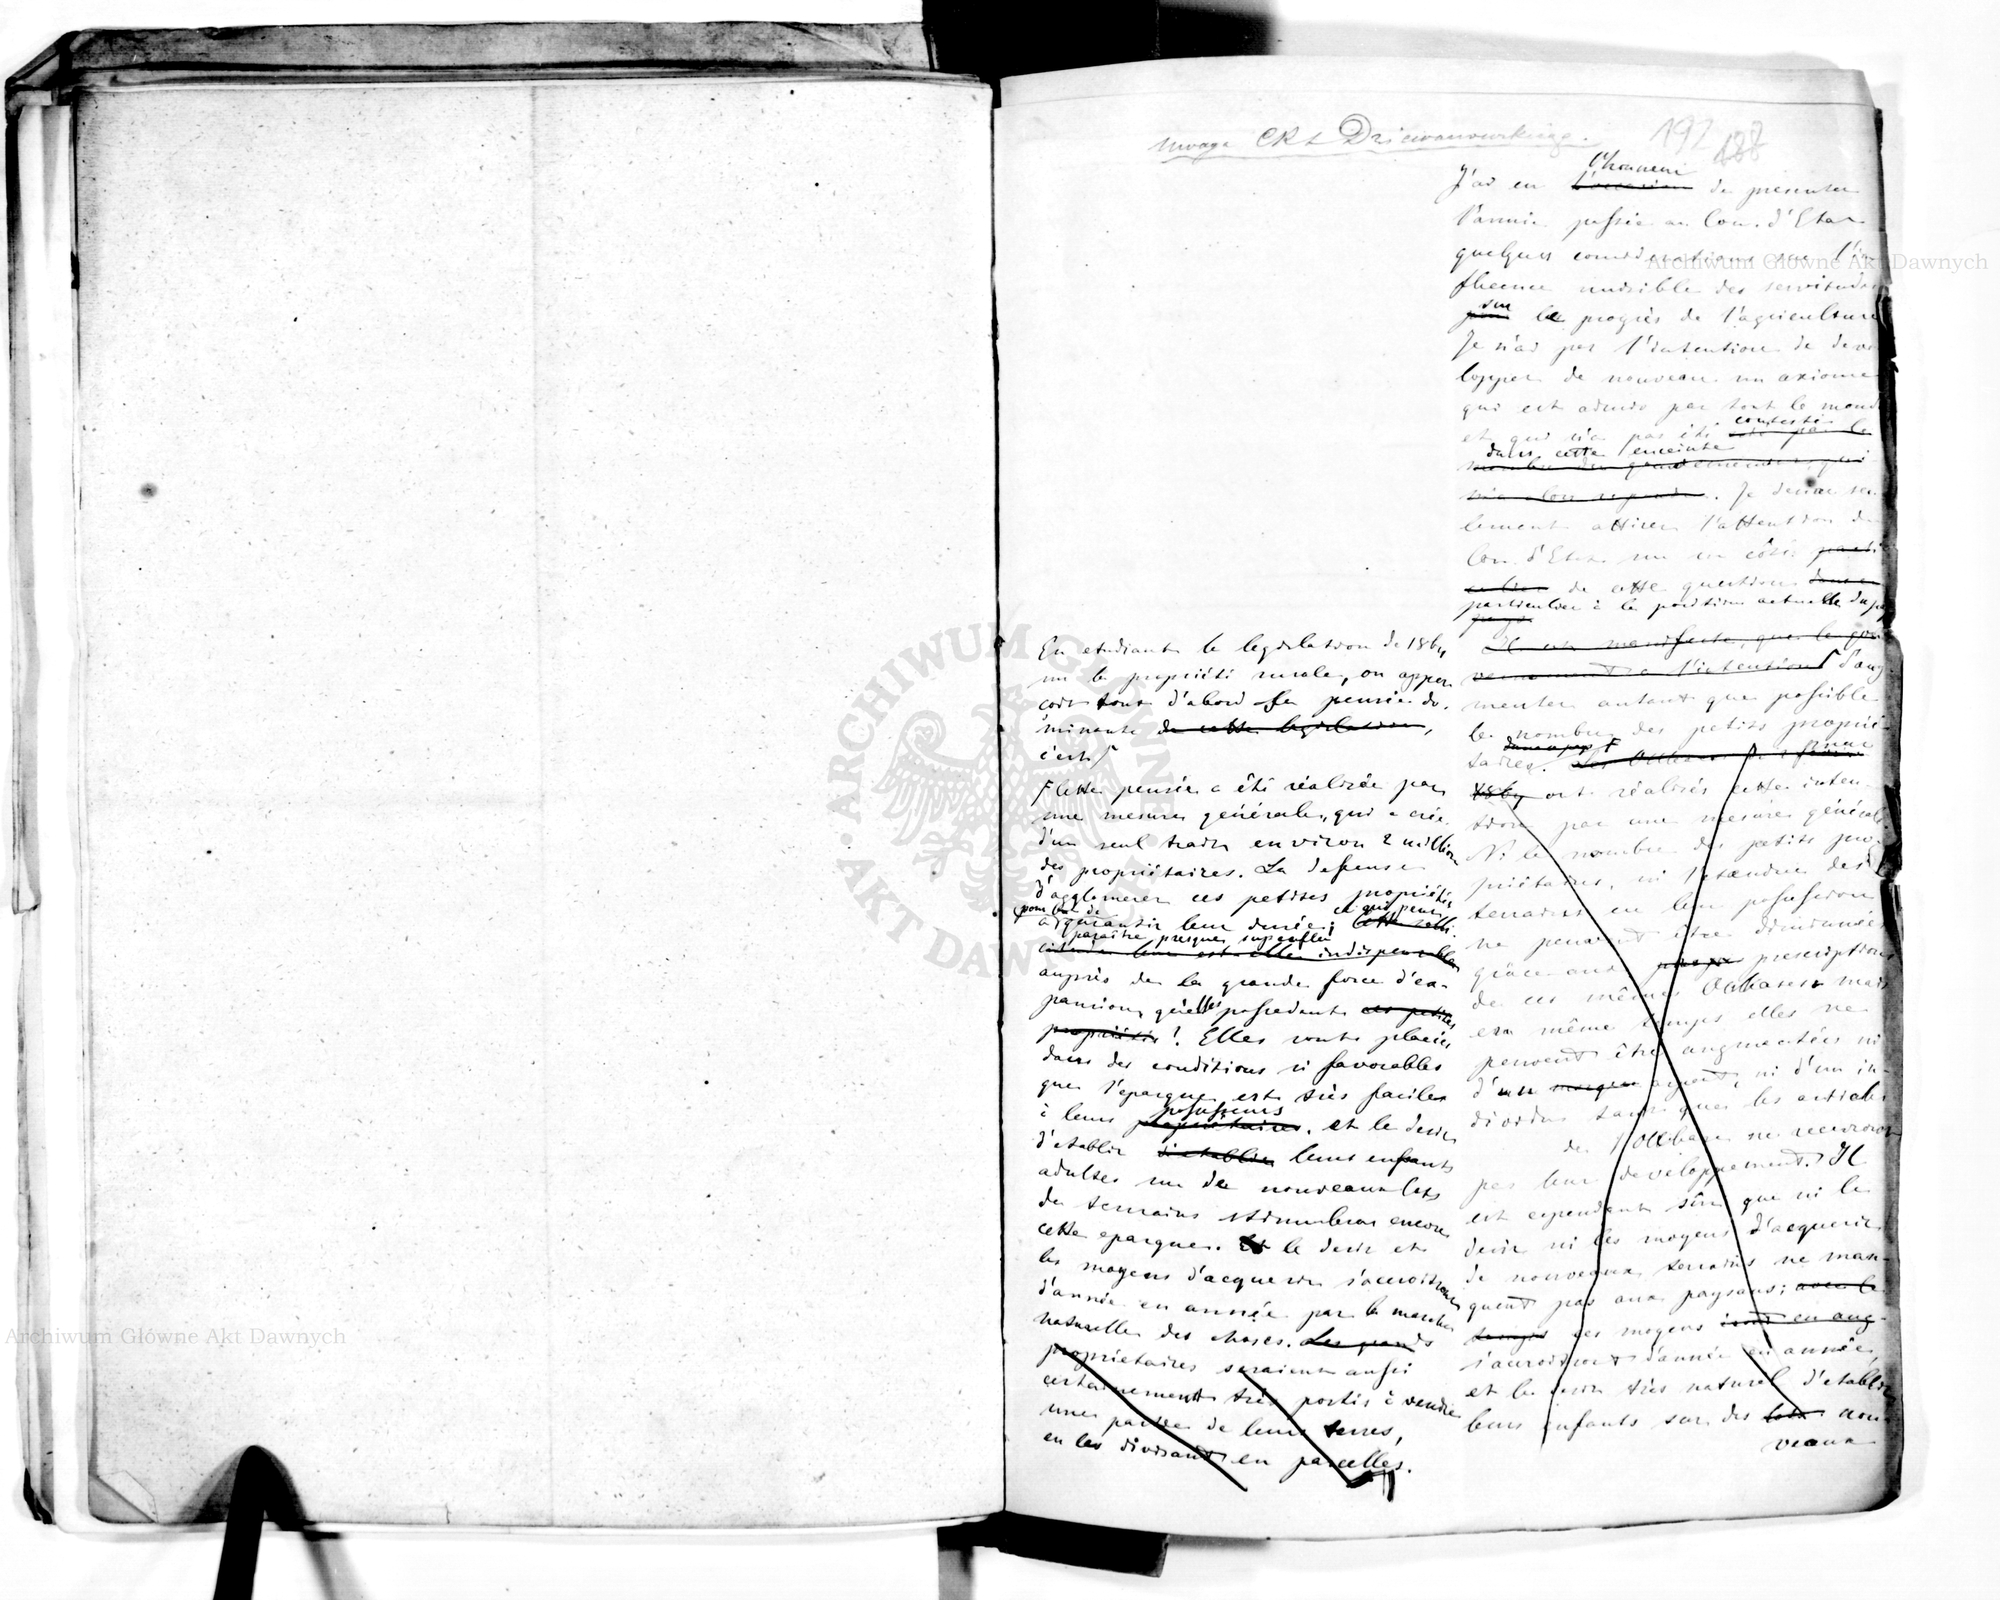 uwaga CRS Dziewanowskiego.
192 188
l'honneur
J'ai eu l'occasion de présenter
l'année passée au Con. d'Etat
quelques considérations sur l'in-
fluence nuisible des servitudes
sur
pour le progrès de l'agriculture
Je n'ai pas l'intention de deve
lopper de nouveau un axiome
qui est admis par tout le monde
contesté
et qui n'a pas été par le
dans cette enceinte
nombre des
. Je desire seu
lement attirer l'attention du
Con. d'Etat sur un côté parti
culier de cette question dans
particulier à la position actuelle du pays
pays
Il est manifeste, que le gou
vernement a l'intention d'aug
menter autant que possible
le nombre des petits proprié-
dans ce pays
taires. Les Oukases
1864 ont réalisés cette inten-
tion par une mesure générale.
Ni le nombre des petits pro-
priétaires, ni l'etendue des
terrains en leur possession
ne peuvent être diminués
grâce aux prescriptions
de ces mêmes Oukases mais
en même temps elles ne
peuvent être augmentées ni
d'un ni d'un in-
dividu tant que les articles
de l'Oukase ne recevront
pas leur développement. Il
est cependant sûr que ni le
desir ni les moyens d'acquerir
de nouveaux terrains ne man-
quent pas aux paysans; avec le
temps ces moyens iront en aug-
s'accroitront d'année en année,
et le desir très naturel d'etablir
leurs enfants sur des lots nou
veaux
En etudiant la legislation de 1864
sur la propriété rurale, on apper
çoit tout d'abord sa pensée do-
minante de cette legislation,
c'est
Cette pensée a été réalisée par
une mesure générale, qui a crée
d'un seul trait environ 2 millions
des propriétaires. La defense
d'agglomerer ces petites propriétés
pour but de et qui peut
a garantir leur durée; cette
paraitre presque superflu
indispensable
auprès de la grande force d'ex-
pansion, qu'elles possedent ces petites
propriétés! Elles sont placées
dans des conditions si favorables
que l'epargne est très facile
possesseurs
à leurs propriétaires. et le desir
d'etablir d'etablir leurs enfants
adultes sur de nouveaux lots
de terrains stimulera encore
cette epargne. Et le desir et
les moyens d'acquerir s'accroitront
d'année en année par la marche
naturelle des choses. Les grands
propriétaires seraient aussi
certainement très portés à vendre
une partie de leurs terres,
en les divisant en parcelles.
Archiwum Główne Akt Dawnych
ARCHIWUM GŁÓWNE AKT DAWNYCH
Archiwum Główne Akt Dawnych